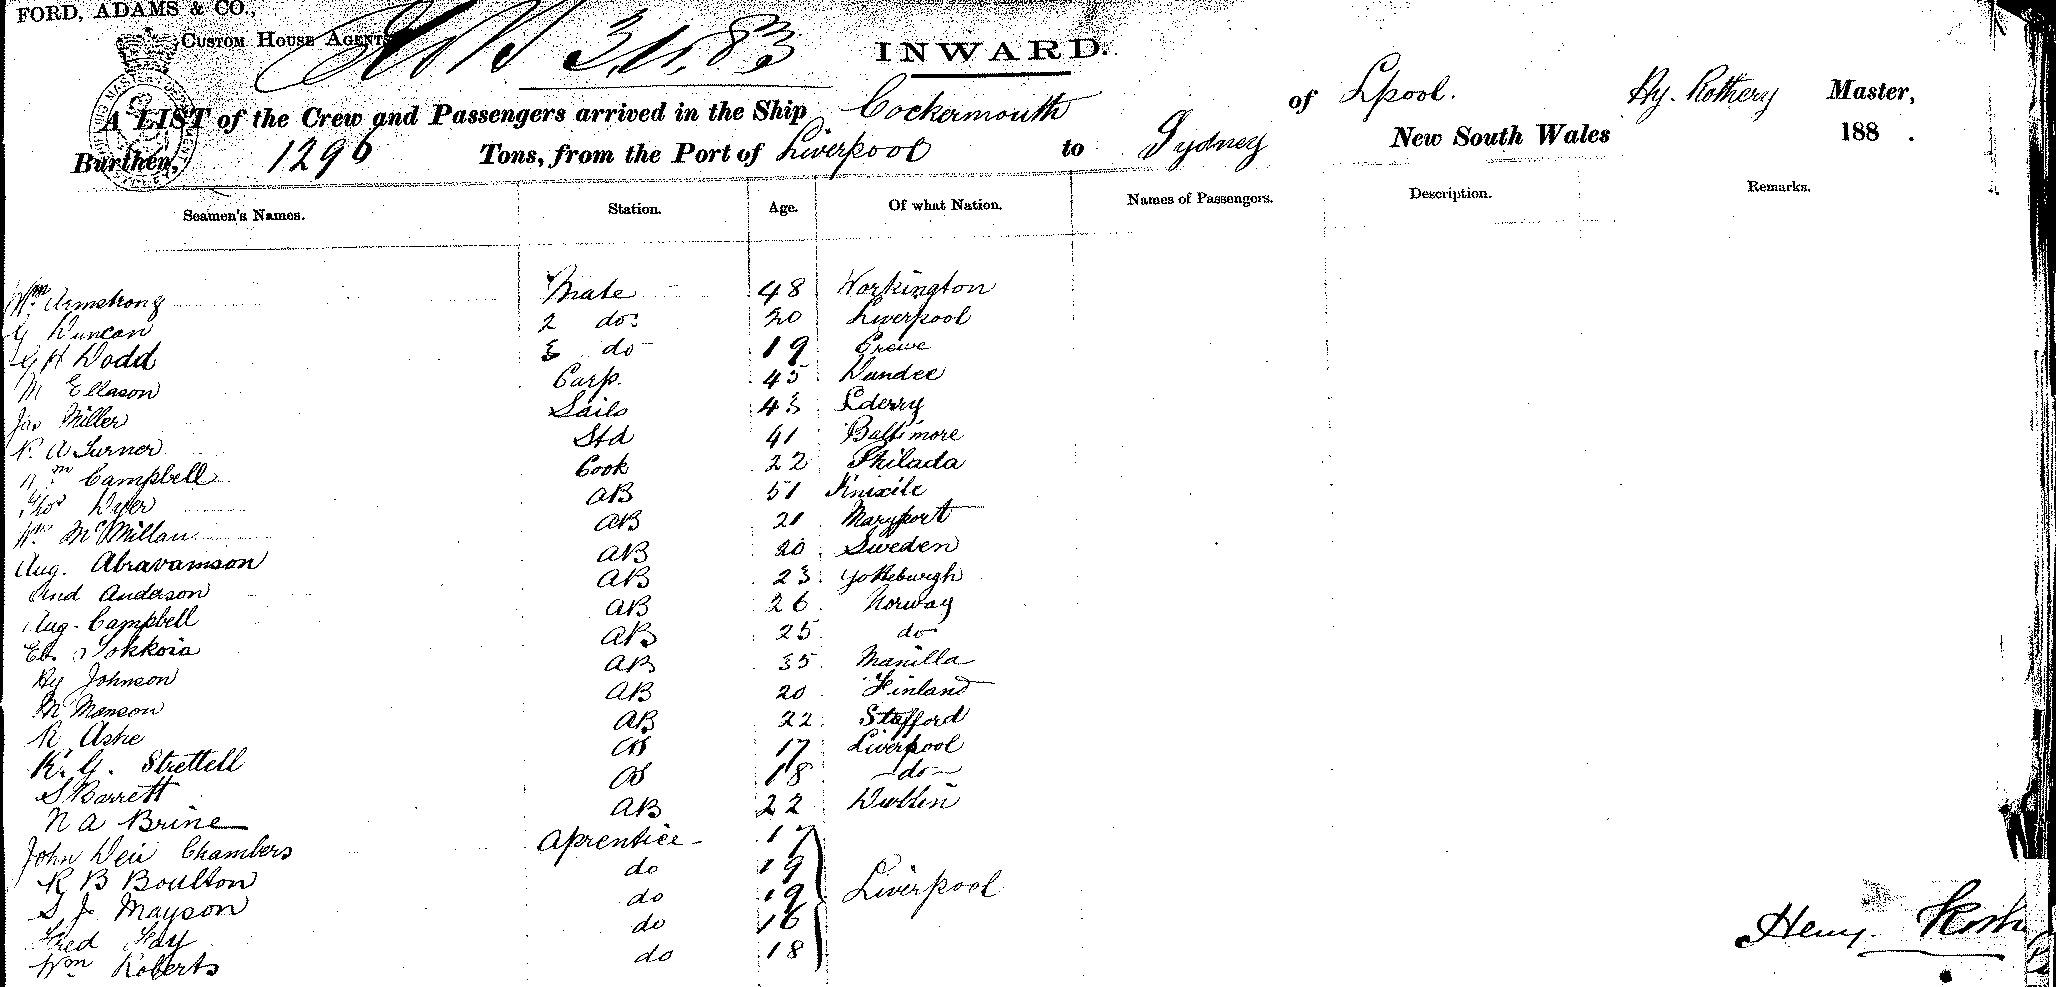 FORD, ADAMS & CO.,
CUSTOM HOUSE AGENTS
3.11.83
INWARD.
A LIST of the Crew and Passengers arrived in the Ship Cockermouth of Lpool. Hy. Rothery Master,
Burthen, 1296 Tons, from the Port of Liverpool to Sydney New South Wales 188 .
Seamen's Names. Station. Age. Of what Nation. Names of Passengers. Description. Remarks.
Wm Armstrong Mate 48 Workington
G Duncan 2 do 20 Liverpool
G H Dodd 3 do 19 Crewe
M Ellason Carp. 45 Dundee
Jas Miller Sails 43 Lderry
R. A Turner Std 41 Baltimore
Wm Campbell Cook 22 Philada
Thos Dyer AB 51
Wm McMillan AB 21 Maryport
Aug. Abravamson AB 20 Sweden
And Anderson AB 23 Gotteburgh
Aug. Campbell AB 26 Norway
AB 25 do
Hy Johnson AB 35 Manilla
M Manson AB 20 Finland
R Ashe AB 22 Stafford
R. G. Strettell OS 17 Liverpool
S Barrett OS 18 do
N A Brine AB 22 Dublin
John Weir Chambers Aprentice 17
R B Boulton do 19
S J Mayson do 19 Liverpool
Fred Fay do 16
Wm Roberts do 18
Henry